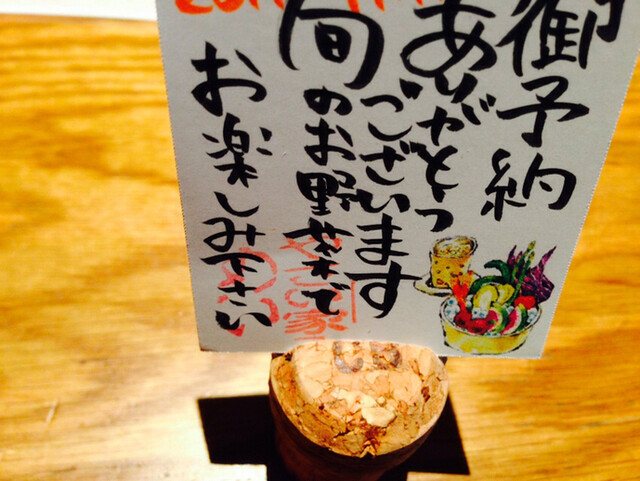 御予約
ありがとう
ございます
旬のお野菜で
お楽しみ下さい